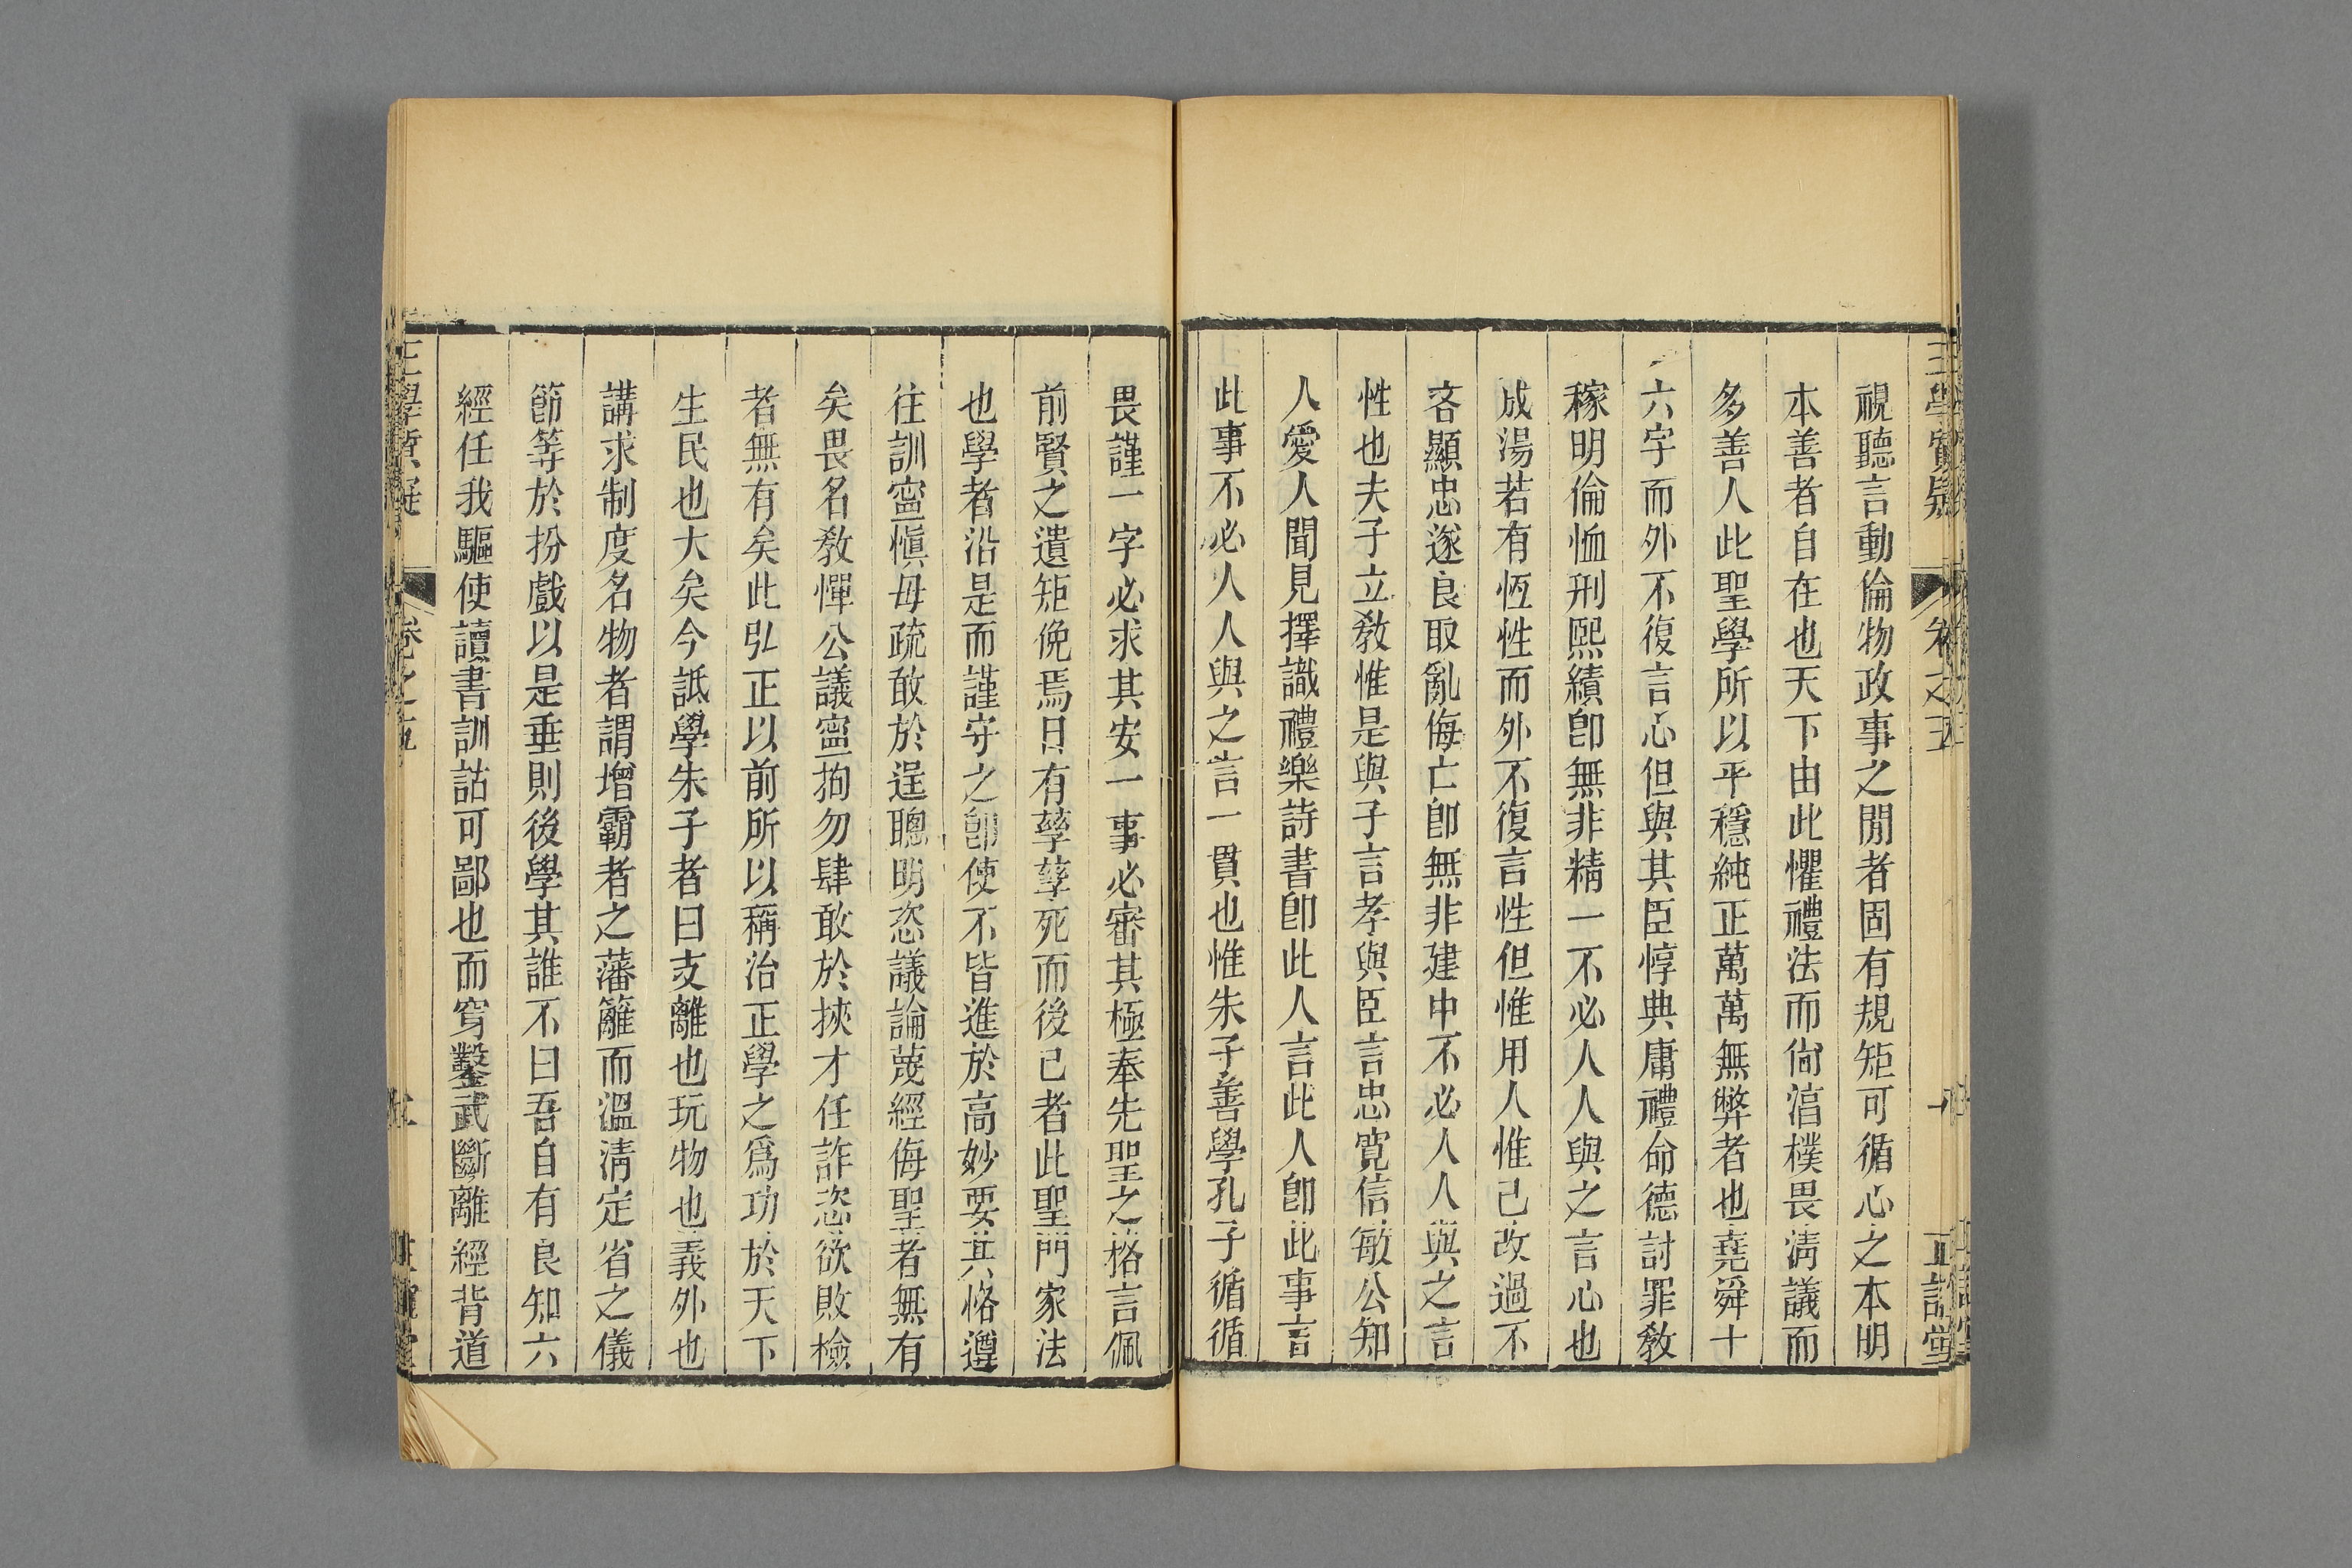 王學質疑 卷之五 正誼堂
視聽言動倫物政事之閒者固有規矩可循心之本明
本善者自在也天下由此懼禮法而尙湻樸畏淸議而
多善人此聖學所以平穩純正萬萬無弊者也堯舜十
六字而外不復言心但與其臣惇典庸禮命德討罪敎
稼明倫恤刑熙績卽無非精一不必人人與之言心也
成湯若有恆性而外不復言性但惟用人惟己改過不
吝顯忠遂良取亂侮亡卽無非建中不必人人與之言
性也夫子立敎惟是與子言孝與臣言忠寬信敏公知
人愛人聞見擇識禮樂詩書卽此人言此人卽此事言
此事不必人人與之言一貫也惟朱子善學孔子循循
畏謹一字必求其安一事必審其極奉先聖之格言佩
前賢之遺矩俛焉日有孳孳死而後已者此聖門家法
也學者沿是而謹守之卽使不皆進於高妙要其恪遵
往訓寍愼毋疏敢於逞聰明恣議論蔑經侮聖者無有
矣畏名敎憚公議寍拘勿肆敢於挾才任詐恣欲敗檢
者無有矣此弘正以前所以稱治正學之爲功於天下
生民也大矣今詆學朱子者曰支離也玩物也義外也
講求制度名物者謂增霸者之藩籬而溫淸定省之儀
節等於扮戲以是垂則後學其誰不曰吾自有良知六
經任我驅使讀書訓詁可鄙也而穿鑿武斷離經背道
王學質疑 卷之五